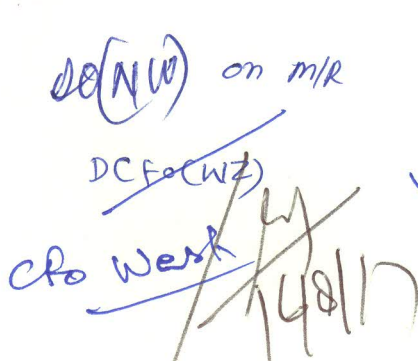 SO(NW) on M/R
DCFO(WZ)
CFO West
14/8/17